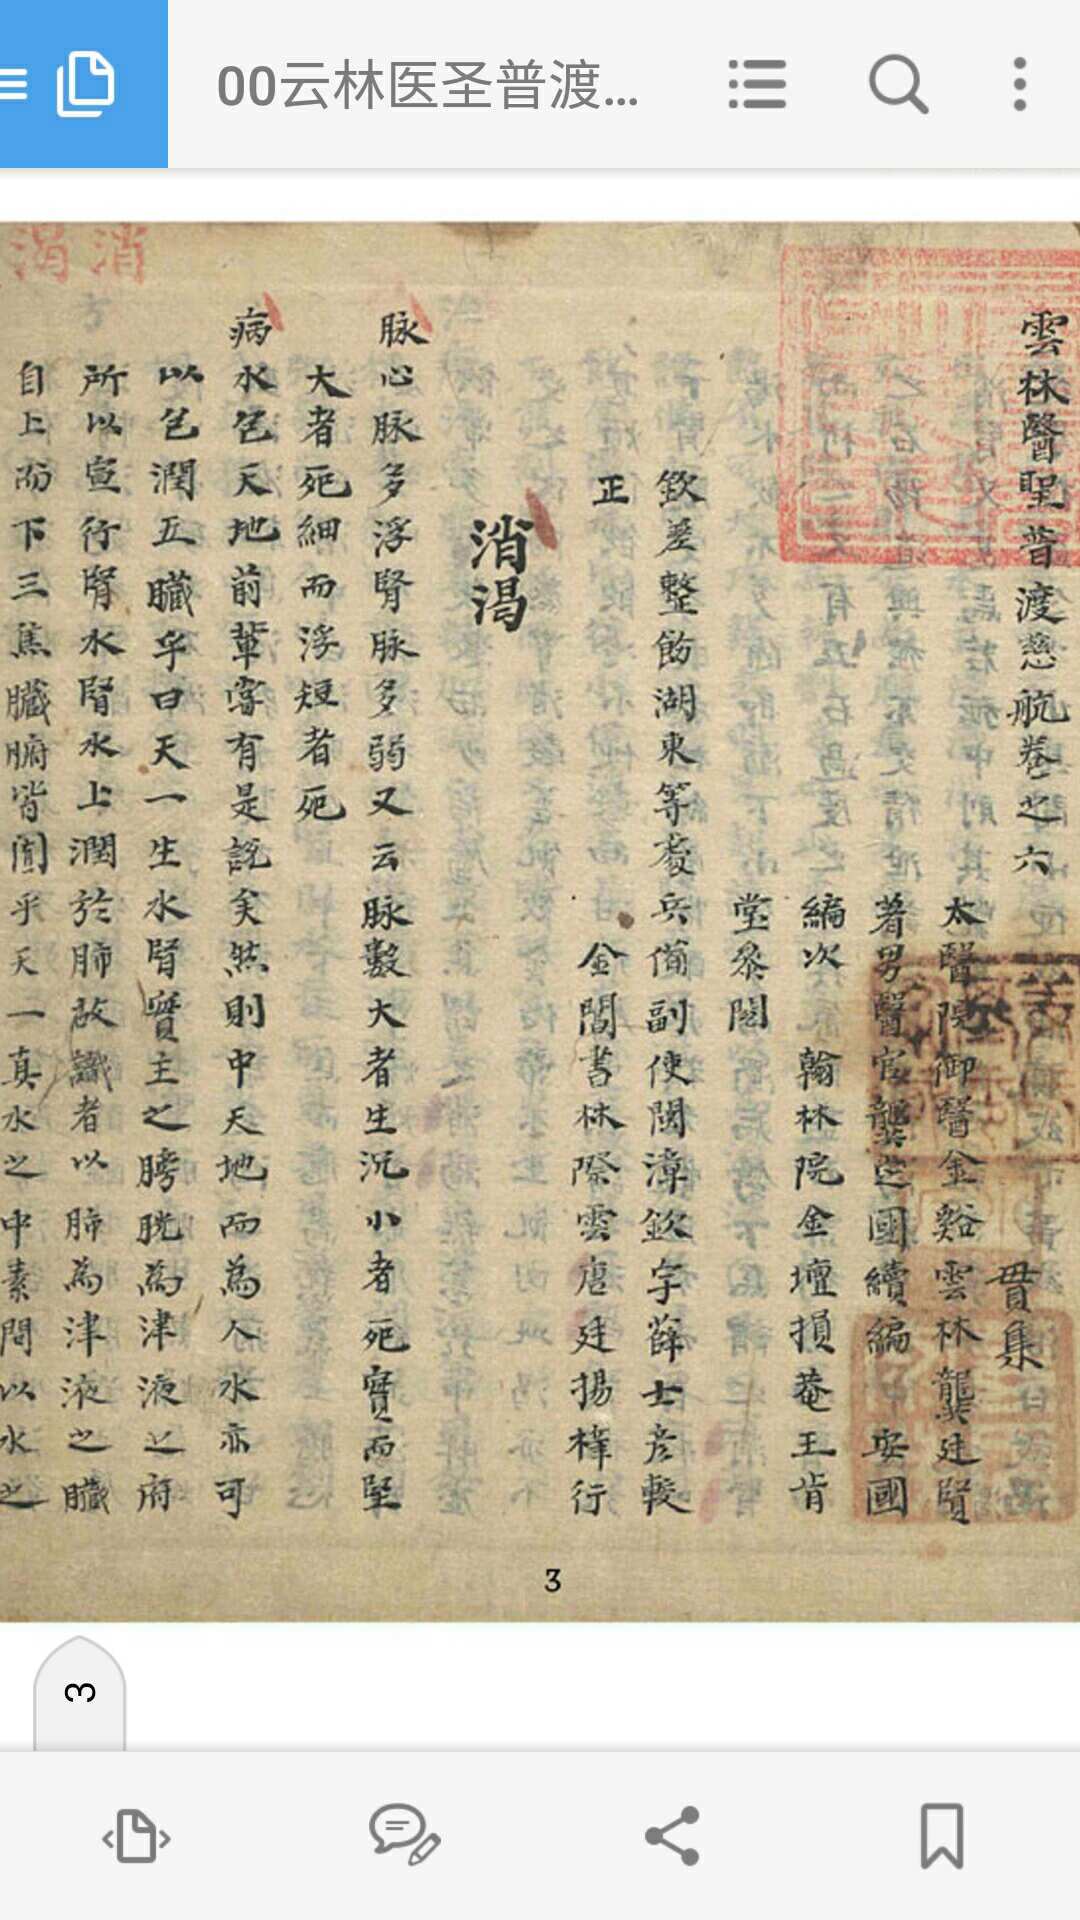 00云林医圣普渡...
消渴
雲林醫聖普渡慈航卷之六
貫集
太醫院御醫金谿雲林龔廷賢
著男醫官龔定國續編 安國
編次 翰林院金壇損菴王肯
堂叅閱
欽差整飭湖東等處兵備副使閩漳欽宇薛士彦較
正 金閶書林際雲唐廷揚梓行
消渴
脉心脉多浮腎脉多弱又云脉數大者生沉小者死實而堅
大者死細而浮短者死
病水包天地前軰甞有是説矣然則中天地而為人水亦可
以包潤五臟乎曰天一生水腎實主之膀胱為津液之府
所以宣行腎水腎水上潤於肺故識者以肺為津液之臟
自上而下三焦臟腑皆囿乎天一真水之中素問以水之
3
3